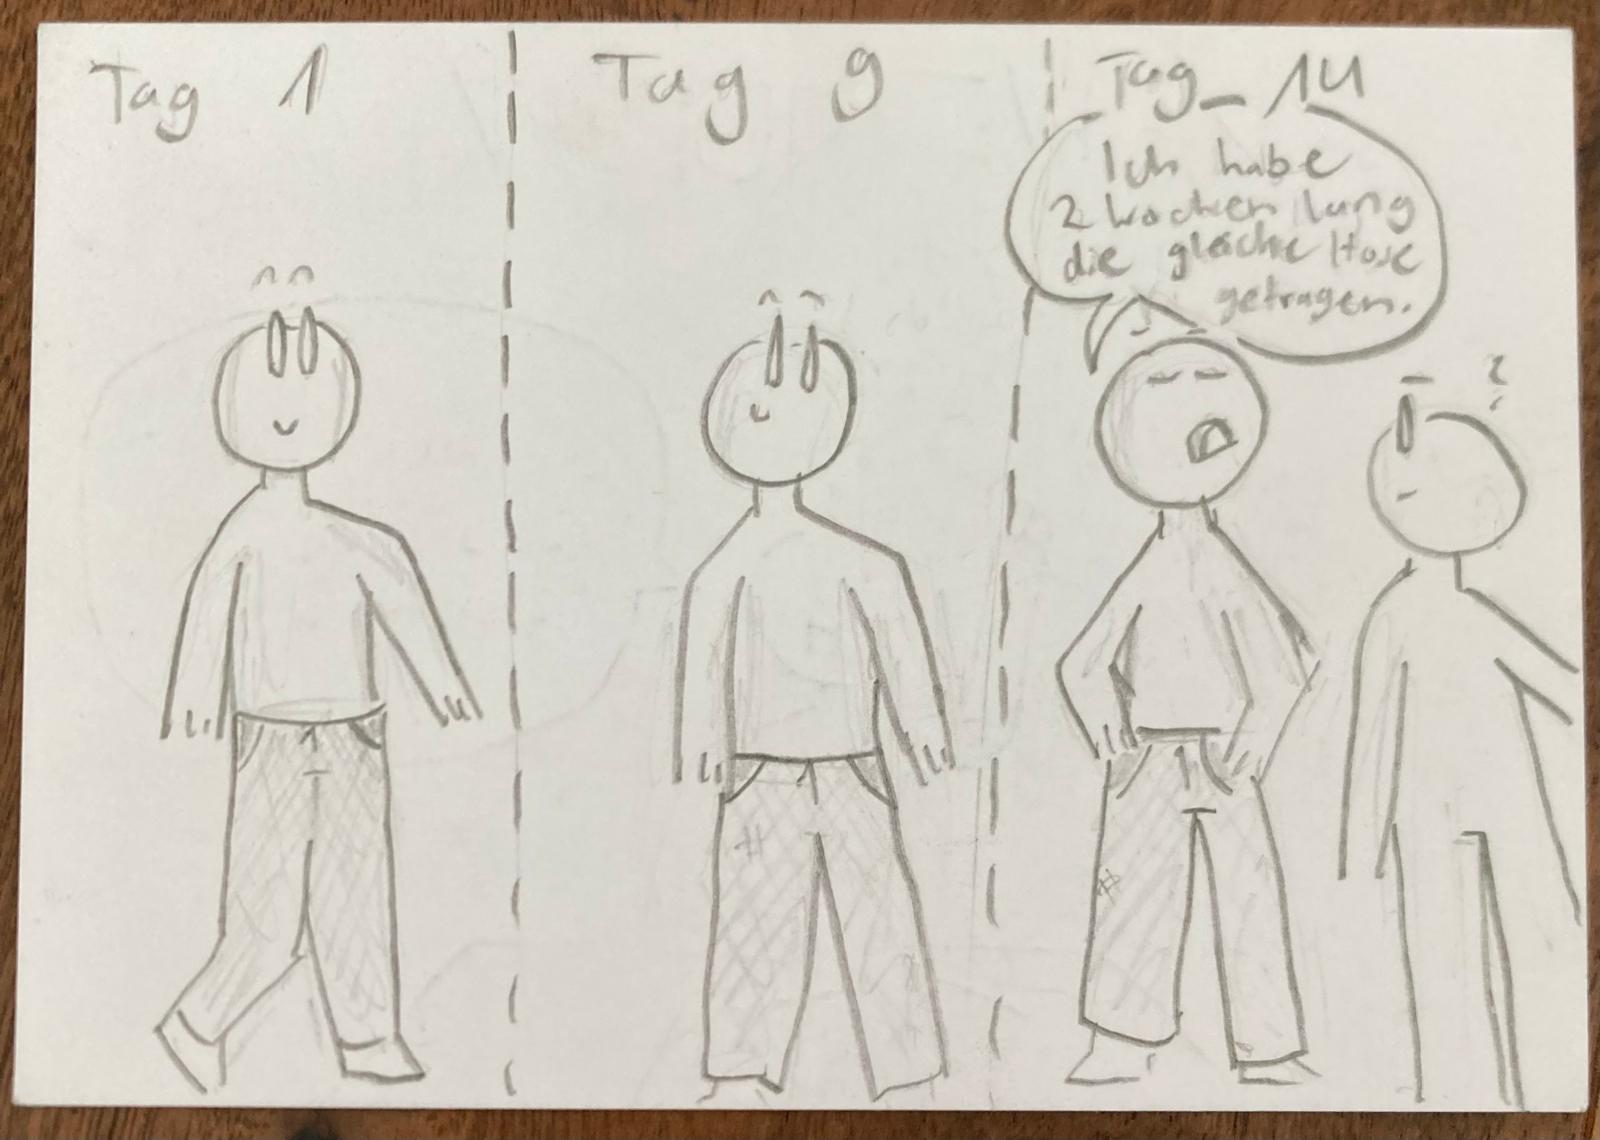 Tag 1
Tag 9
Tag 14
Ich habe
2 Wochen lang
die gleiche Hose
getragen.
?